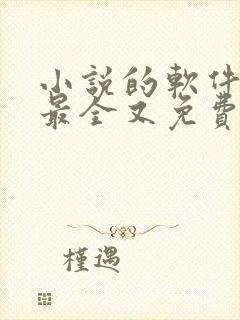 小說的軟件
最全又免費
槿遇